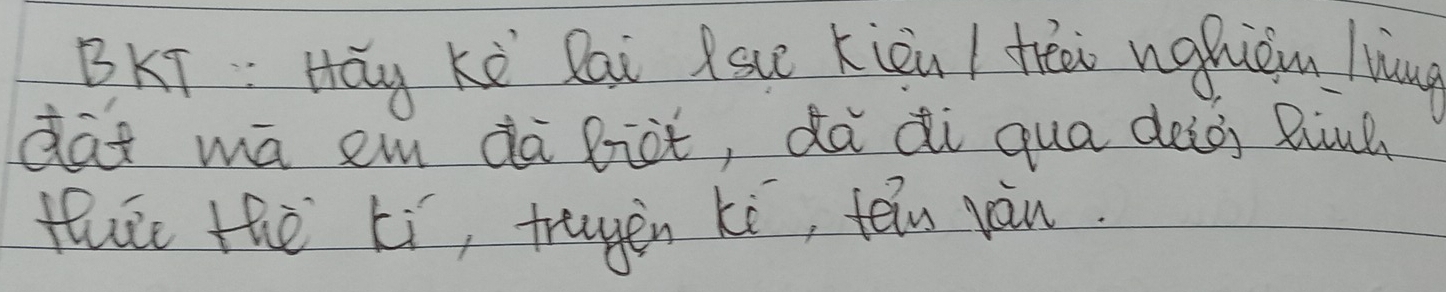 BKT : Hãy kể lại 1 sự kiện / trải nghiệm / vùng
đất mà em đã biết, đã đi qua dưới hình
thức thể kí, truyện kí, tản văn.